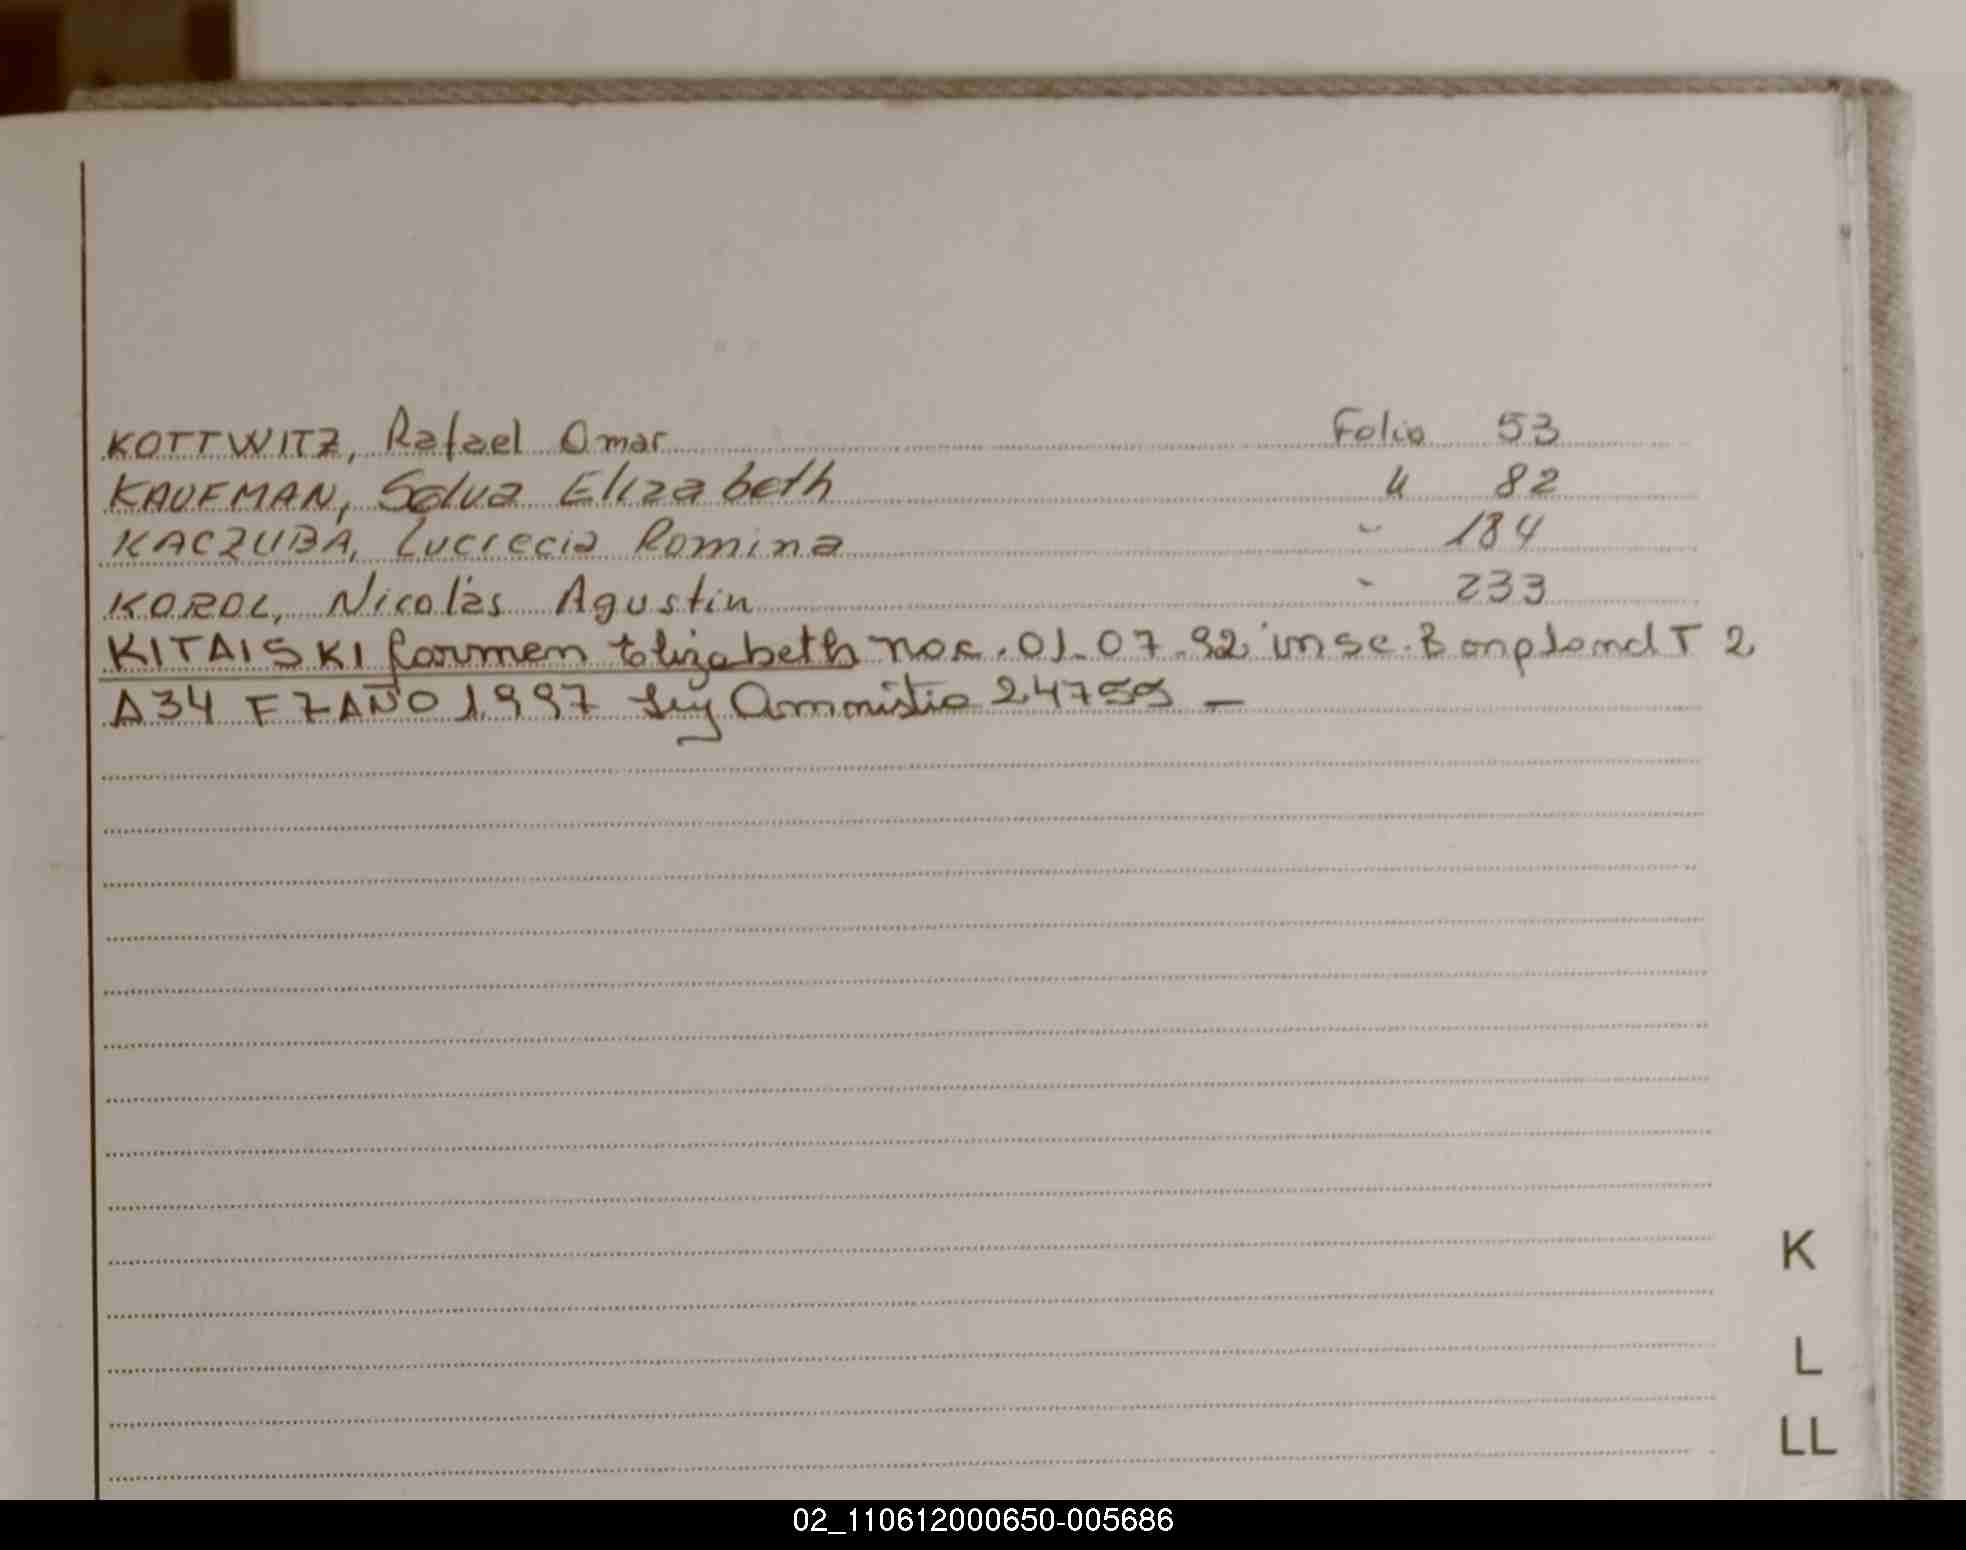 KOTTWITZ, Rafael Omar Folio 53
KAUFMAN, Selva Elizabeth " 82
KACZUBA, Lucrecia Romina - 184
KOROL, Nicolás Agustin - 233
KITAISKI Carmen Elizabeth nac. 01-07-92 insc. Bonpland T 2
A34 F7 AÑO 1997 Ley Amnistia 24755 —
K
L
LL
02_110612000650-005686